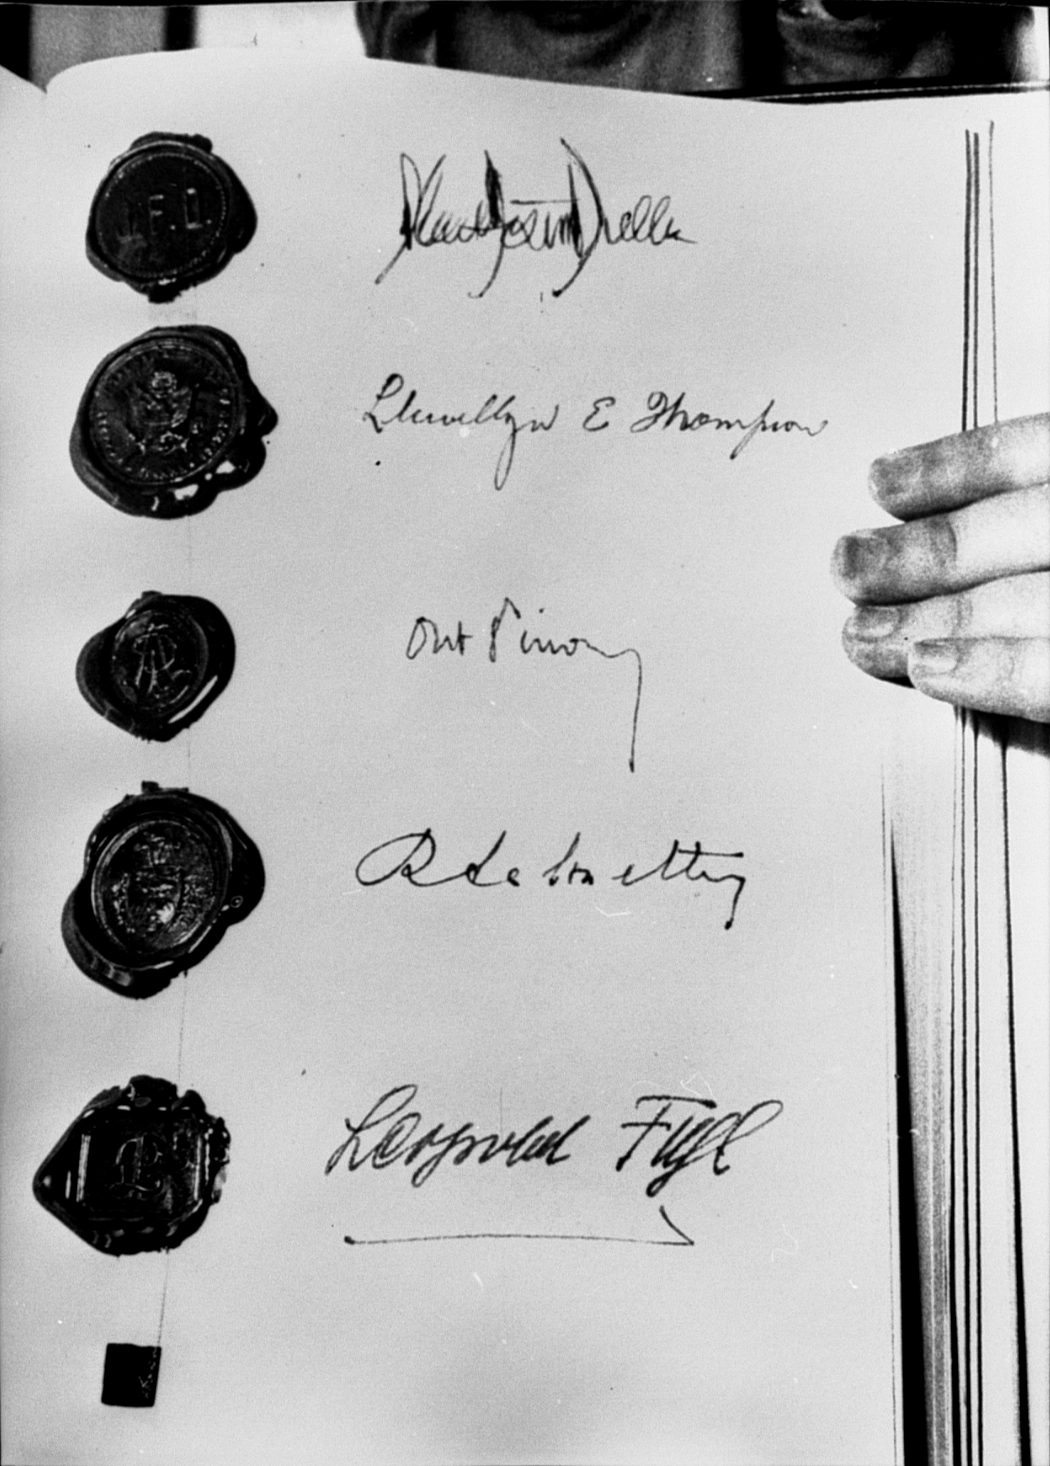 J.F.D.
John Foster Dulles
Llewellyn E Thompson
Ant Pinay
R Lalouette
Leopold Figl